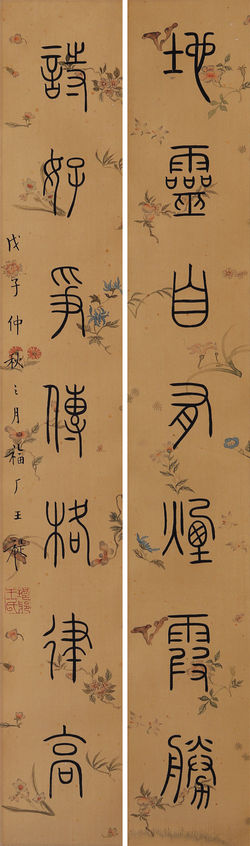 地靈自有煙霞勝
詩好爭傳格律高
戊子仲秋之月福厂王禔